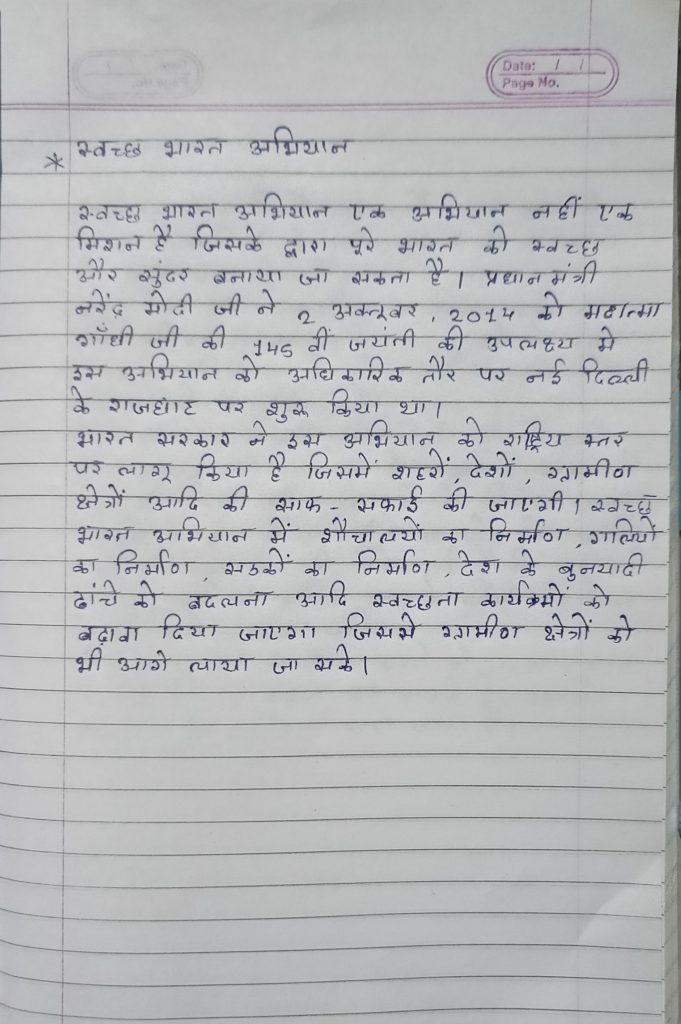 Date: / /
Page No.
* स्वच्छ भारत अभियान
स्वच्छ भारत अभियान एक अभियान नहीं एक
मिशन है जिसके द्वारा पूरे भारत को स्वच्छ
और सुंदर बनाया जा सकता है। प्रधान मंत्री
नरेंद्र मोदी जी ने 2 अक्टूबर, 2014 को महात्मा
गाँधी जी की 145 वीं जयंती की उपलक्ष्य में
इस अभियान को अधिकारिक तौर पर नई दिल्ली
के राजघाट पर शुरू किया था।
भारत सरकार ने इस अभियान को राष्ट्रिय स्तर
पर लागू किया है जिसमें शहरों, देशों, ग्रामीण
क्षेत्रों आदि की साफ - सफाई की जाएगी। स्वच्छ
भारत अभियान में शौचालयों का निर्माण, गलियों
का निर्माण, सडकों का निर्माण, देश के बुनयादी
ढांचे को बदलना आदि स्वच्छता कार्यक्रमों को
बढ़ावा दिया जाएगा जिससे ग्रामीण क्षेत्रों को
भी आगे लाया जा सके।